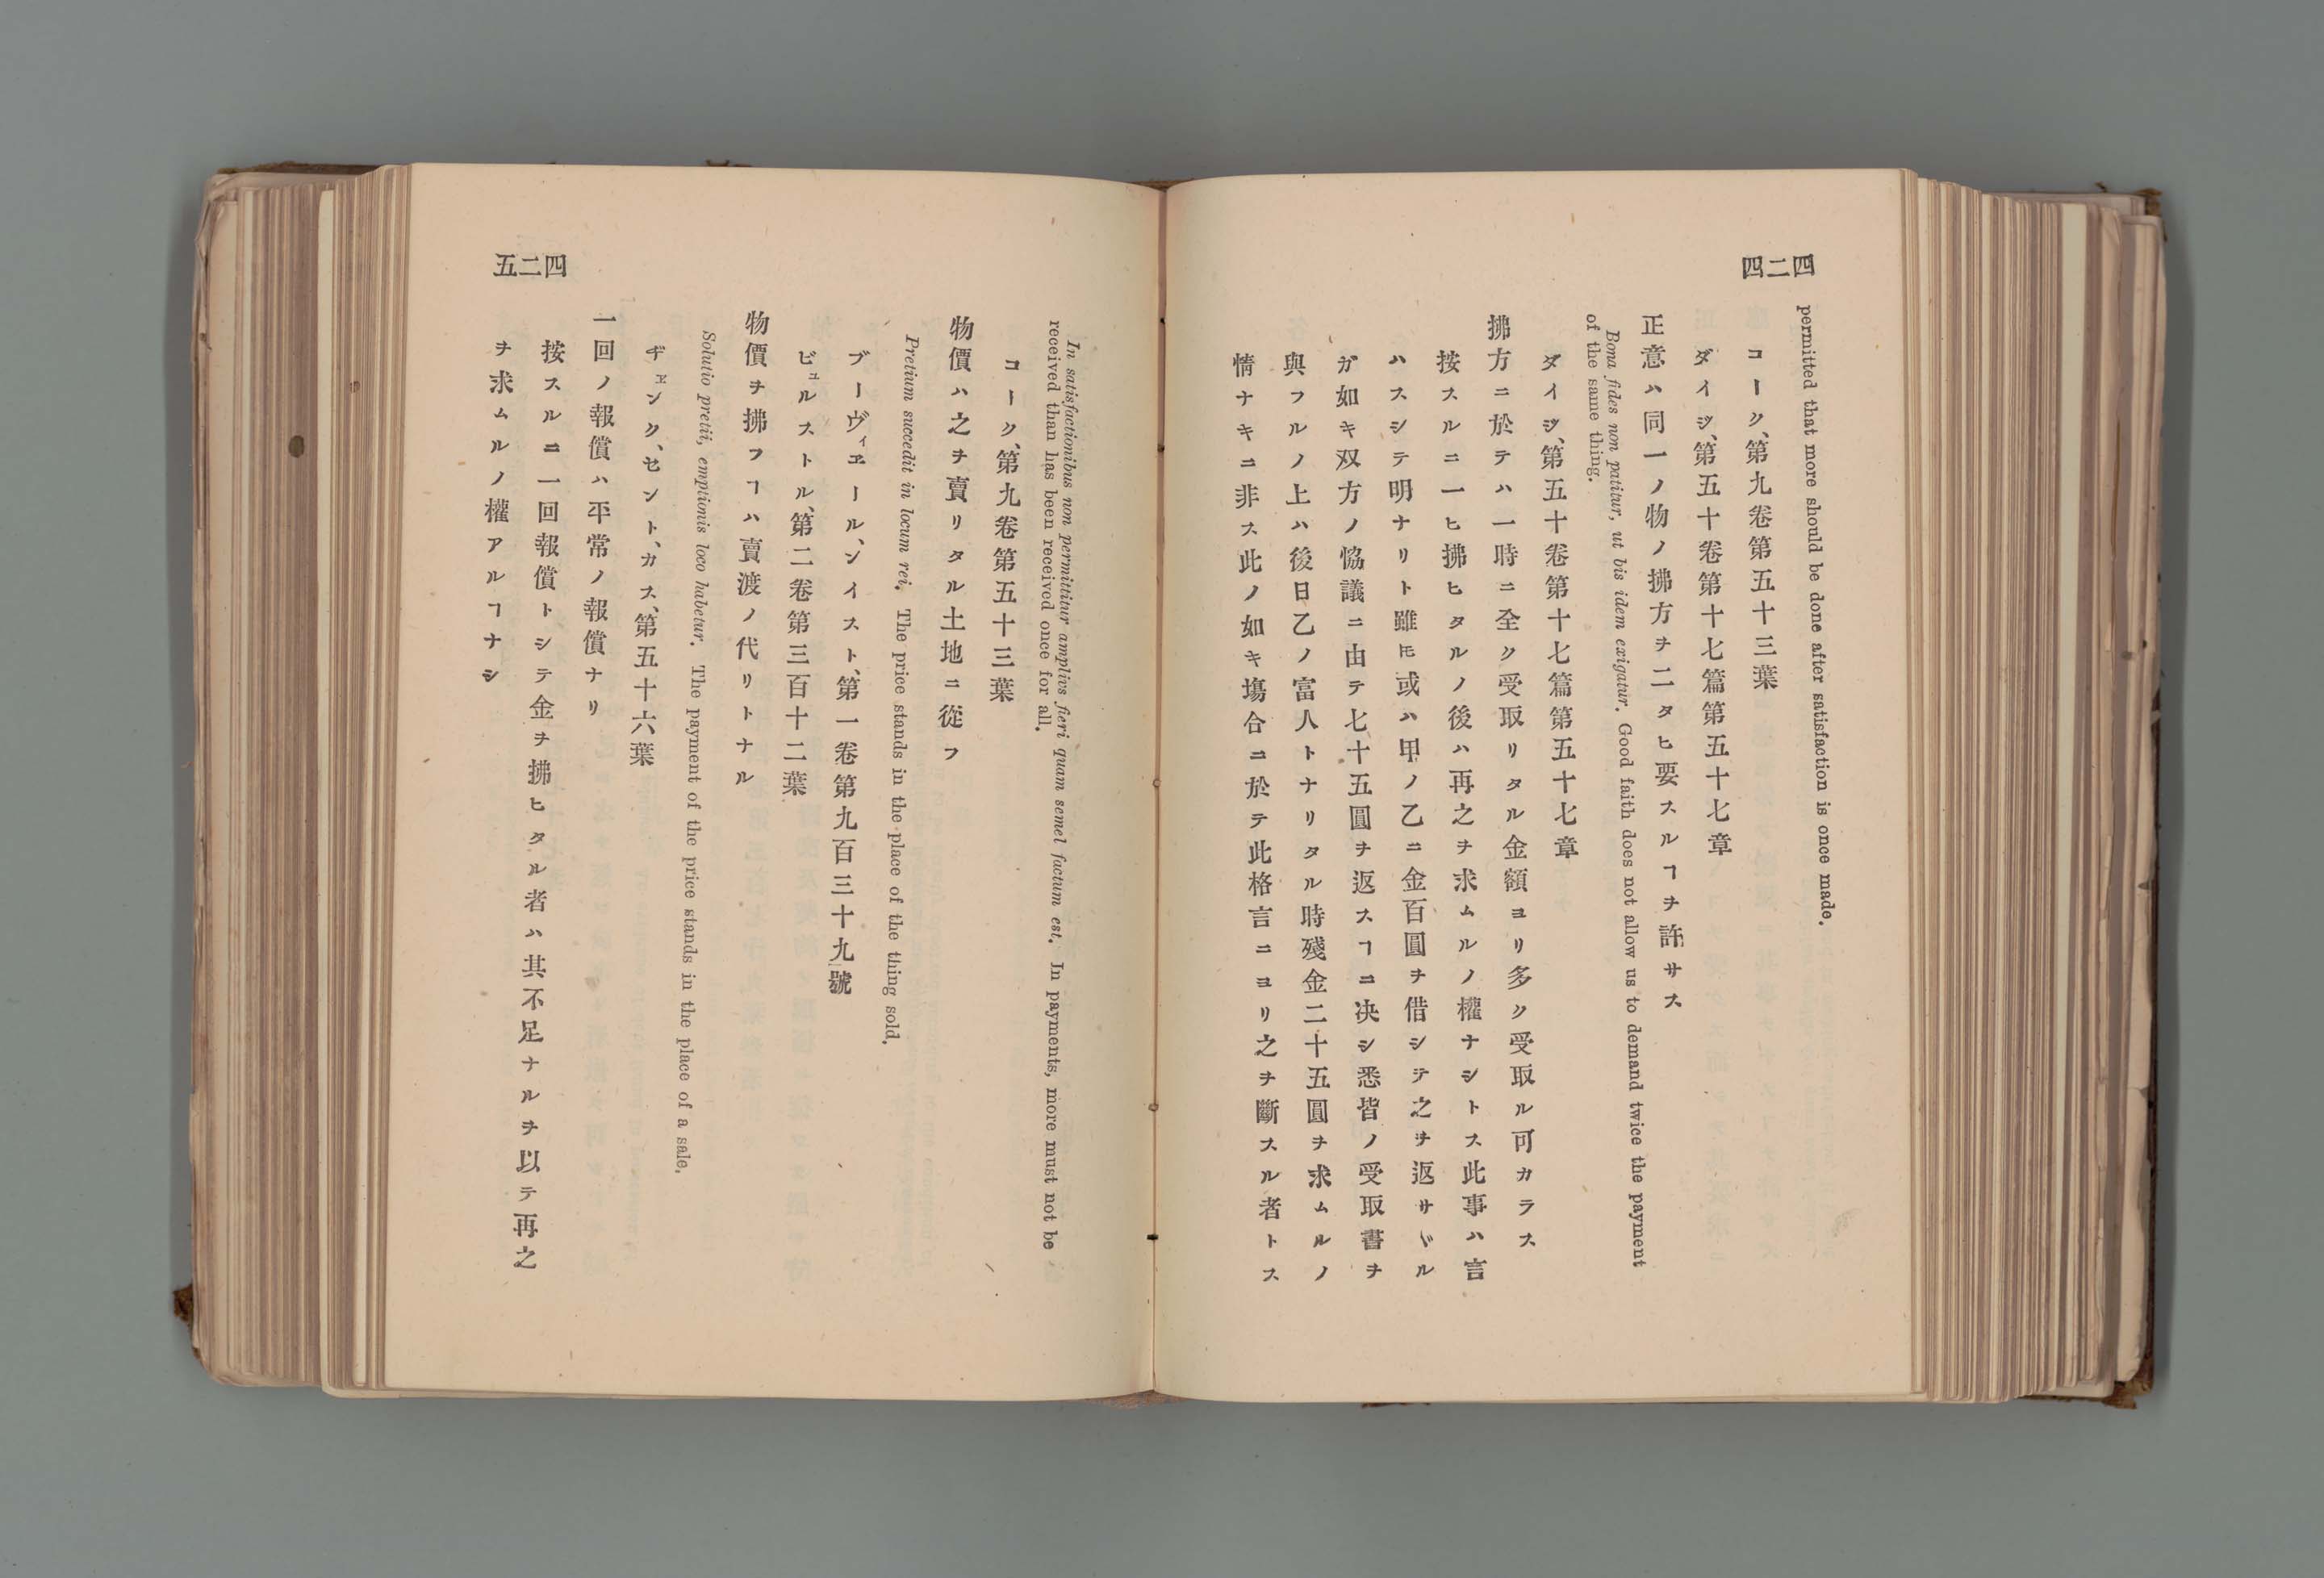 四二四
permitted that more should be done after satisfaction is once made.
コーク、第九卷第五十三葉
ダイジ、第五十卷第十七篇第五十七章
正意ハ同一ノ物ノ拂方ヲ二タヒ要スルヿヲ許サス
Bona fides non patitur, ut bis idem exigatur. Good faith does not allow us to demand twice the payment
of the same thing.
ダイジ、第五十卷第十七篇第五十七章
拂方ニ於テハ一時ニ全ク受取リタル金額ヨリ多ク受取ル可カラス
按スルニ一ヒ拂ヒタルノ後ハ再之ヲ求ムルノ權ナシトス此事ハ言
ハスシテ明ナリト雖𪜈或ハ甲ノ乙ニ金百圓ヲ借シテ之ヲ返サヾル
ガ如キ双方ノ恊議ニ由テ七十五圓ヲ返スヿニ决シ悉皆ノ受取書ヲ
與フルノ上ハ後日乙ノ富人トナリタル時殘金二十五圓ヲ求ムルノ
情ナキニ非ス此ノ如キ塲合ニ於テ此格言ニヨリ之ヲ斷スル者トス
四二五
In satisfactionibus non permittitur amplivs fieri quam semel factum est. In payments, more must not be
received than has been received once for all.
コーク、第九卷第五十三葉
物價ハ之ヲ賣リタル土地ニ從フ
Pretium succedit in locum rei. The price stands in the place of the thing sold.
ブーヴィエール、ンイスト、第一卷第九百三十九號
ビュルストル、第二卷第三百十二葉
物價ヲ拂フヿハ賣渡ノ代リトナル
Solutio pretii, emptionis loco habetur. The payment of the price stands in the place of a sale.
ヂェンク、セント、カス、第五十六葉
一回ノ報償ハ平常ノ報償ナリ
按スルニ一回報償トシテ金ヲ拂ヒタル者ハ其不足ナルヲ以テ再之
ヲ求ムルノ權アルヿナシ